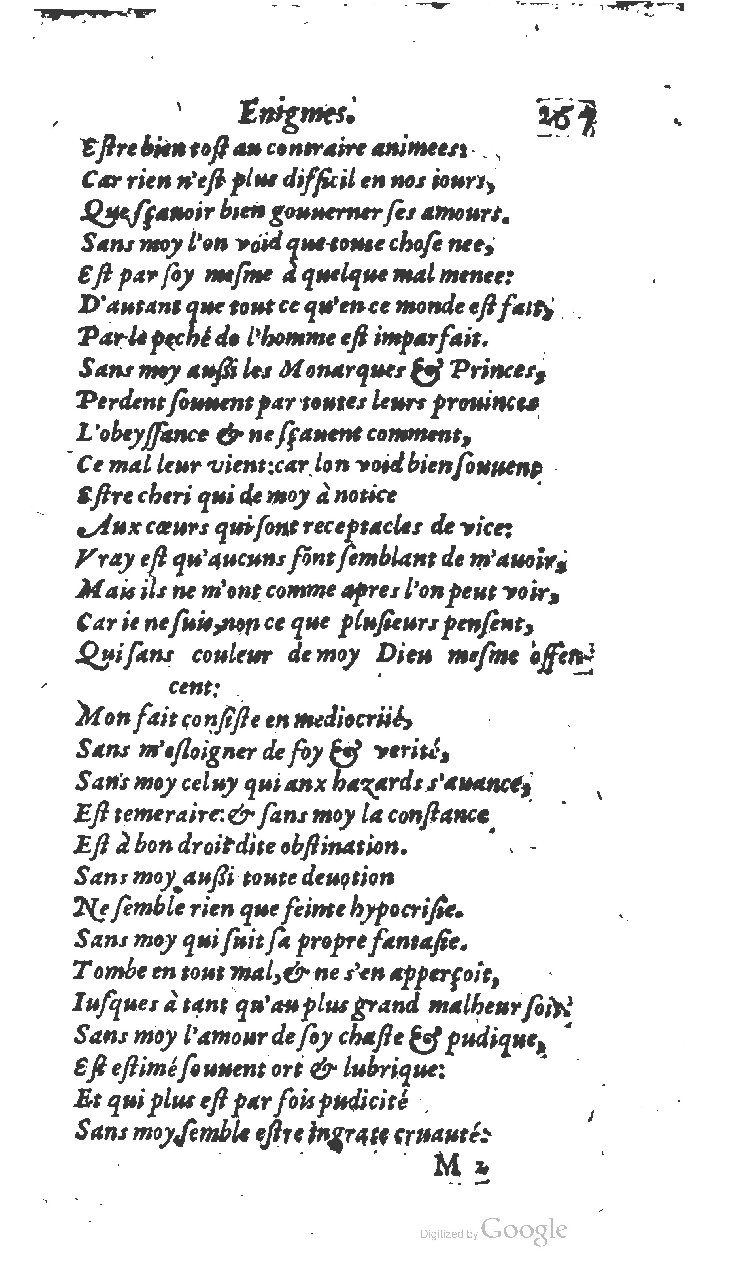 Enigmes. 267
Eſtre bien toſt au contraire animees:
Car rien n'eſt plus difficil en nos iours,
Que ſçauoir bien gouuerner ſes amours.
Sans moy l'on void que toute choſe nee,
Eſt par ſoy meſme à quelque mal menee:
D'autant que tout ce qu'en ce monde eſt fait,
Par le peché de l'homme eſt imparfait.
Sans moy auſſi les Monarques & Princes,
Perdent ſouuent par toutes leurs prouinces
L'obeyſſance & ne ſçauent comment,
Ce mal leur vient: car lon void bien ſouuent
Eſtre cheri qui de moy à notice
Aux cœurs qui ſont receptacles de vice:
Vray eſt qu'aucuns fōnt ſemblant de m'auoir,
Mais ils ne m'ont comme apres l'on peut voir,
Car ie ne ſuis, non ce que pluſieurs penſent,
Qui ſans couleur de moy Dieu meſme offen-
cent:
Mon fait conſiſte en mediocrité,
Sans m'eſloigner de foy & verité,
Sans moy celuy qui aux hazards s'auance,
Eſt temeraire: & ſans moy la conſtance
Eſt à bon droit dite obſtination.
Sans moy auſſi toute deuotion
Ne ſemble rien que feinte hypocriſie.
Sans moy qui ſuit ſa propre fantaſie.
Tombe en tout mal, & ne s'en apperçoit,
Iuſques à tant qu'au plus grand malheur ſoit.
Sans moy l'amour de ſoy chaſte & pudique,
Eſt eſtimé ſouuent ort & lubrique:
Et qui plus eſt par fois pudicité
Sans moy ſemble eſtre ingrate cruauté:
M 2
Digitized by Google